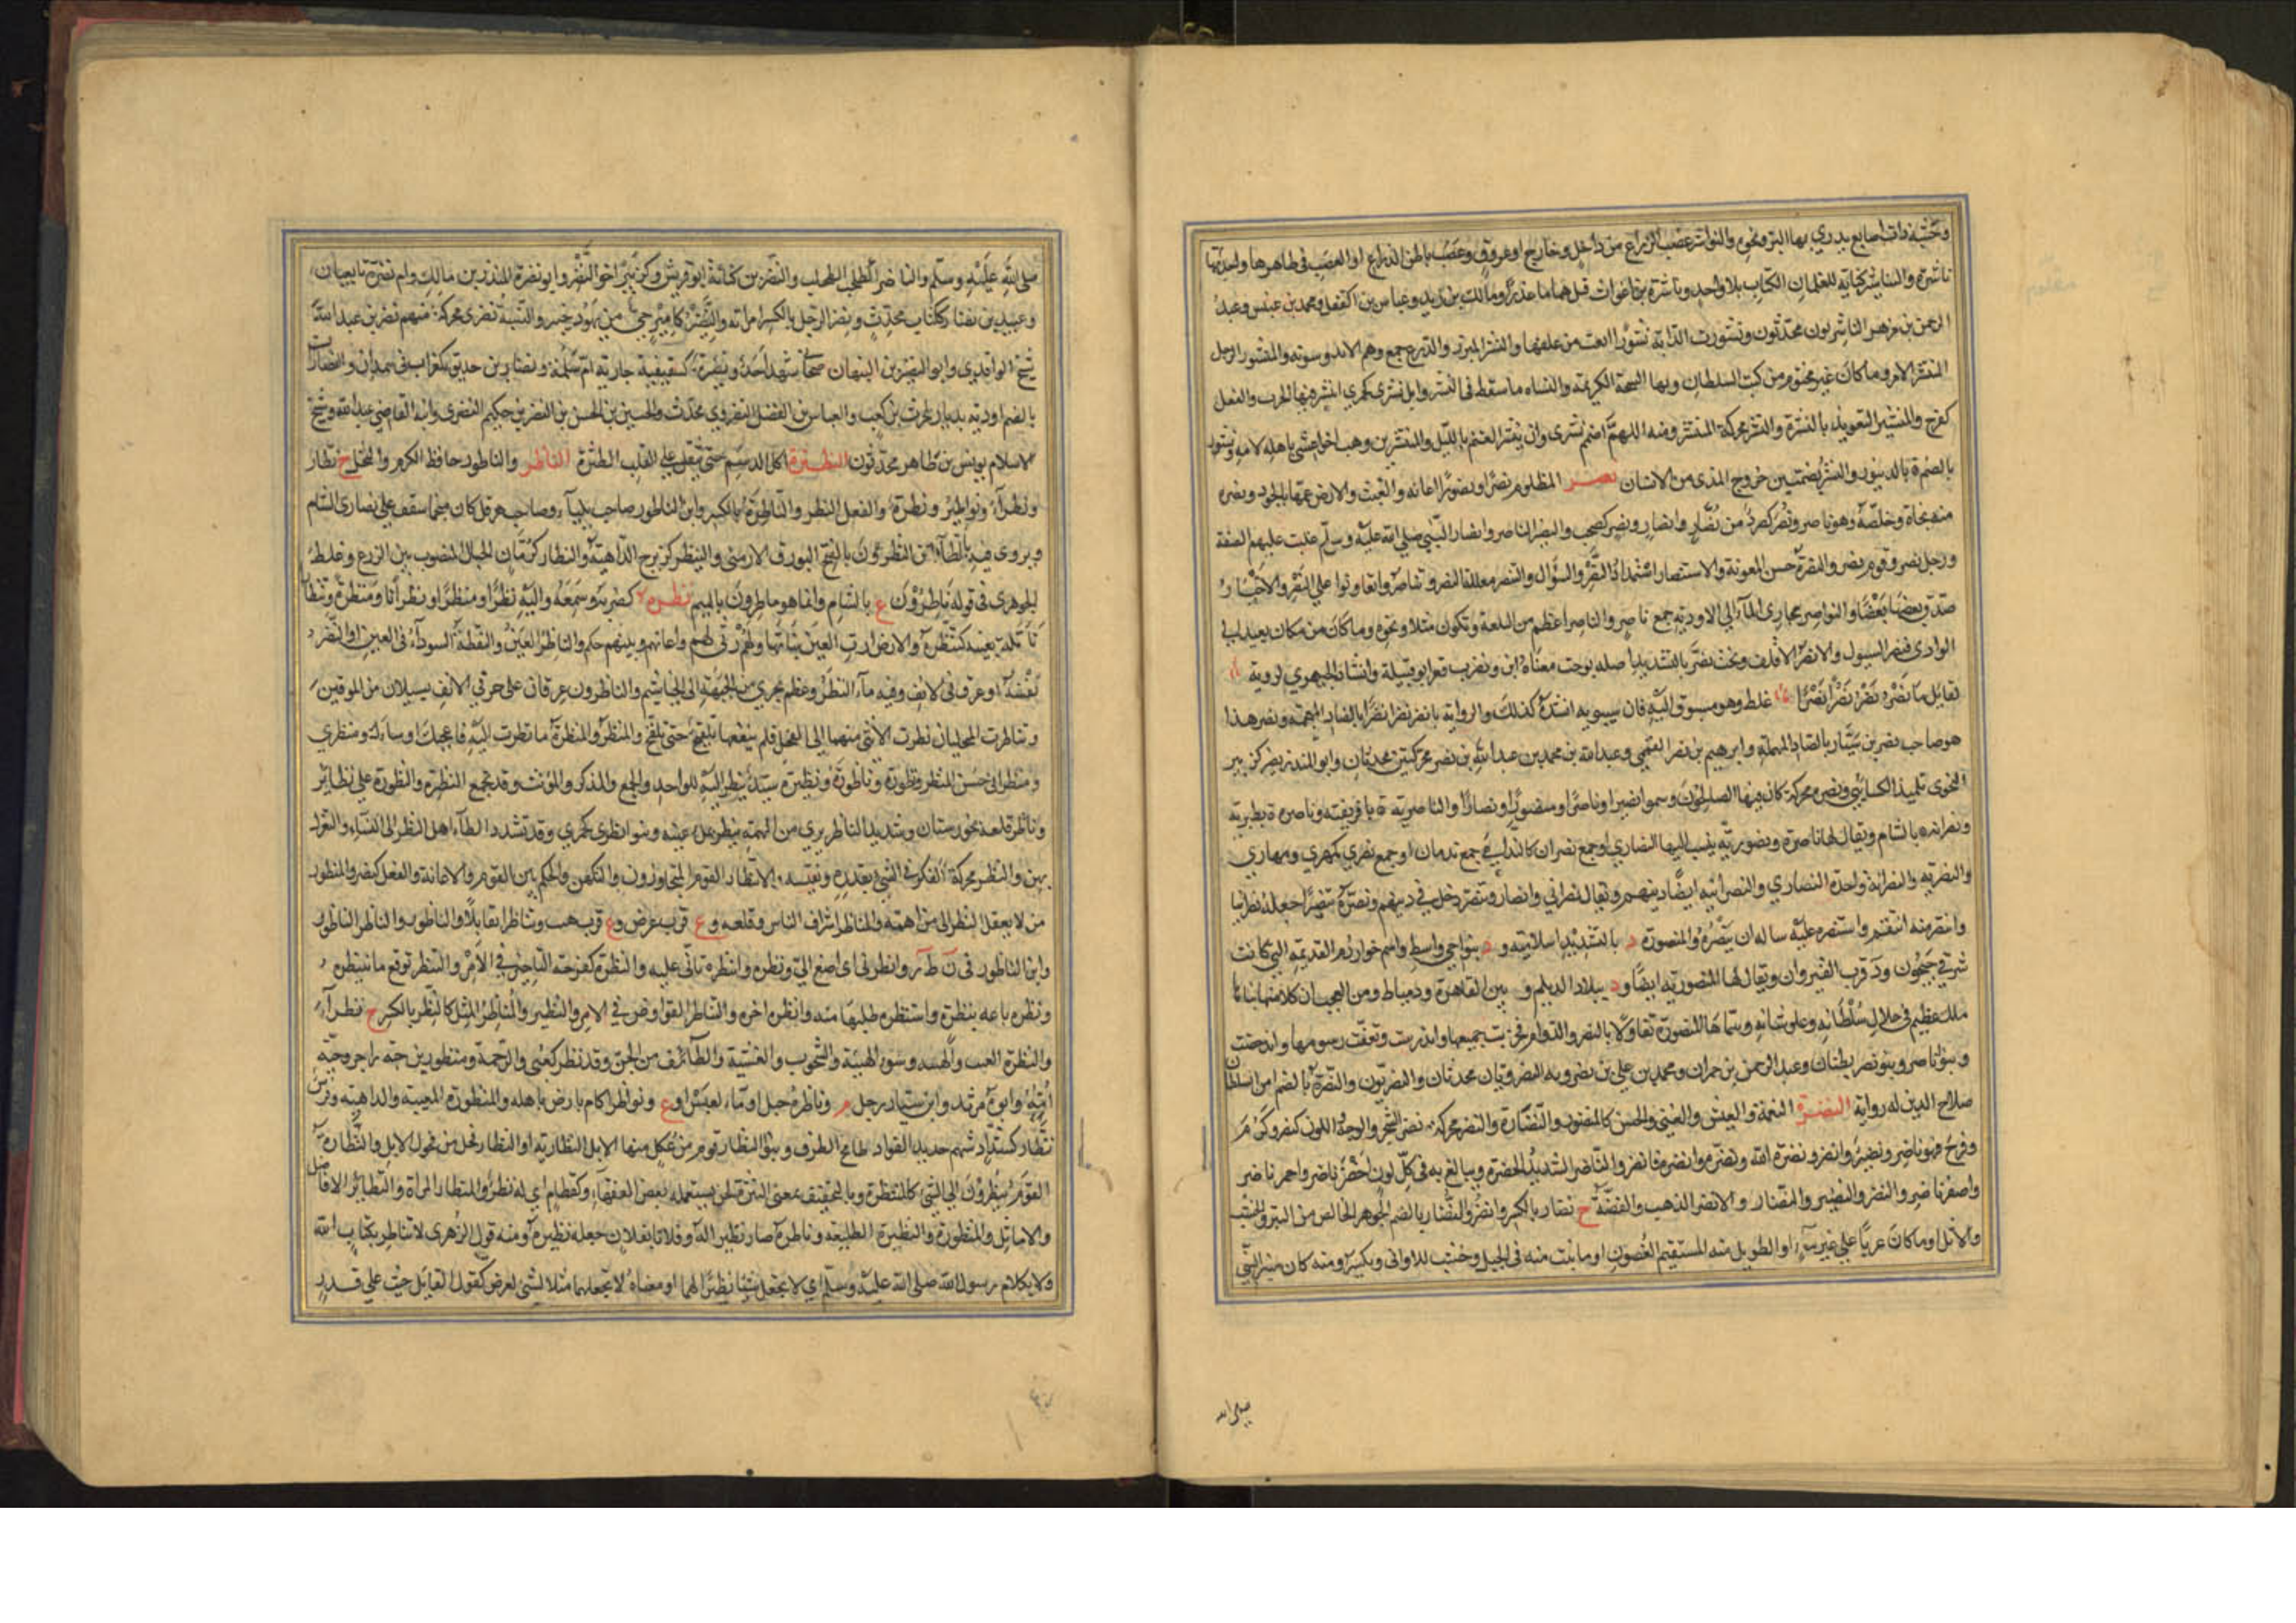 وخشبة ذات اصابع يذري بها البر ونحوه والنواشر عصب الذراع من داخل وخارج او عروق وعصب باطن الذراع او العصب في ظاهرها واحدتها
ناشرة والتناشير كتابة للغلمان الكتاب بلا واحد وناشرة بن اغواث قتل هماما غدرا ومالك بن زيد وعباس بن الفضل ومحمد بن عنبس وعبد
الرحمن بن مزهر الناشريون محدثون ونشورت الدابة نشوارا ابقت من علفها والنشر المبرد والذرع جمع وهم الاند وسوته والمنشور الرجل
المنتشر الامر وما كان غير مختوم من كتب السلطان وبهاء السمحة الكريمة والنشارة ما سقط في النشر وابل نشرى كجمزى انتشر فيها الجرب والفعل
كفرح والتنشير التعويذ بالنشرة والنشر محركة المنتشر ومنه اللهم اضمم نشري وان ينتشر الغنم بالليل والمنتشر بن وهب اخو اعشى باهلة لامه ونشور
بالضم ة بالدينور والنشر بضمتين خروج المذي من الانسان نصر المظلوم نصرا ونصورا اعانه والغيث الارض عمها بالجود ونصره
منه نجاه وخلصه وهو ناصر ونصر كصرد من نصار وانصار ونصر كصحب والنصير الناصر وانصار النبي صلى الله عليه وسلم غلبت عليهم الصفة
ورجل نصر وقوم نصر والنصرة حسن المعونة والاستنصار استمداد النصر والسؤال والتنصر معالجة النصر وتناصروا تعاونوا على النصر والاخبار
صدق بعضها بعضا والنواصر مجاري الماء الى الاودية جمع ناصر والناصر اعظم من التلعة وتكون ميلا ونحوه وما كان من مكان بعيد الى
الوادي فنصر السيول والانصر الاقلف وبخت نصر بالتشديد اصله بوخت معناه ابن ونصر وابو قبيلة وانشاد الجوهري لروبة
لقائل يا نصر نصرا نصرا غلط وهو مسبوق اليه فان سيبويه انشده كذلك والرواية يا نضر نضرا نضرا بالضاد المعجمة ونضر هذا
هو صاحب نصر بن سيار بالصاد المهملة وابرهيم بن نصر الضبي وعبد الله بن محمد بن عبد الله بن نصر محركتين محدثان وابو المنذر نصير كزبير
النحوي تلميذ الكسائي ونصرة محركة كان فيها الصالحون وسموا نصيرا وناصرا ومنصورا ونصارا والناصرية ة بافريقية وناصرة ة بطبرية
ونصرانة ة بالشام ويقال لها ناصرة ونصورية ينسب اليها النصاري او جمع نصران كالندامى جمع ندمان او جمع نصري كمهري ومهاري
والنصرانية والنصرانة واحدة النصاري والنصرانية ايضا دينهم ويقال نصراني وانصار وتنصر دخل في دينهم ونصره تنصيرا جعله نصرانيا
وانتصر منه انتقم واستنصره عليه ساله ان ينصره والمنصورة د بالسند اسلامية و د بنواحي واسط واسم خوارزم القديمة التي كانت
شرقي جيحون ود قرب القيروان ويقال لها المنصورية ايضا ود ببلاد الديلم و بين القاهرة ودمياط ومن العجب ان كلا منها بناها
ملك عظيم في جلال سلطانه وعلو شانه وسماها المنصورة تفاولا بالنصر والدوام فخربت جميعها واندرست وتعفت رسومها واندحضت
وبنو ناصر وبنو نصر بطنان وعبد الرحمن بن حمران ومحمد بن علي بن نصرويه النصرويان محدثان والنصريون والنصرة بالضم ابن السلطان
صلاح الدين له رواية النضرة النعمة والعيش والغنى والحسن كالنضور والنضارة والنضر محركة نضر الشجر والوجه واللون كنصر وكرم
وفرح فهو ناضر ونضير وانضر ونضره الله ونضره وانضره فانضر والناضر الشديد الخضرة ويبالغ به في كل لون اخضر ناضر واحمر ناضر
واصفر ناضر والنضر والنضير والنضار والانضر الذهب والفضة ج نضار بالكسر وانضر والنضار بالضم الجوهر الخالص من التبر والخشب
والاثل او ما كان عذيا على غير ماء او الطويل منه المستقيم الغصون او ما نبت منه في الجبل وخشب للاواني ويكسر ومنه كان منبر النبي
صلى الله
صلى الله عليه وسلم والناضر الطحلب والنضر بن كنانة ابو قريش وكزبير اخو النضر وابو نضرة المنذر بن مالك وام نضرة تابعيان
وعبيد بن نضار ككتاب محدث ونضر الرجل بالكسر امراته والنضير كامير حي من يهود خيبر والنسبة نضري محركة منهم نضر بن عبد الله
شيخ الواقدي وابو النضير بن التيهان صحابي شهد احدا ونضيرة كسفينة جارية ام سلمة ونضار بن حديق كغراب في همدان والنضارات
بالضم اودية بديار بلحرث بن كعب والعباس بن الفضل النضروي محدث والحسين بن الحسن بن النضر بن حكيم النضري وابنه القاضي عبد الله وشيخ
الاسلام يونس بن طاهر محدثون النطثرة اكل الدسم حتى يثقل على القلب الطنثرة الناطر والناطور حافظ الكرم والنخل ج نطار
ونطراء ونواطير ونطرة والفعل النطر والنطارة بالكسر وابن الناطور صاحب ايلياء وصاحب هرقل كان منجما سقف على نصارى الشام
ويروى فيه بالظاء من النظر والنطرون بالفتح البورق الارمني والنيطر كزبرج الداهية والنطار كرمان الخيال المنصوب بين الزرع وغلط
الجوهري في قوله ناطرون ع بالشام وانما هو ماطرون بالميم نظره كضربه وسمعه واليه نظرا ومنظرا ونظرانا ومنظرة وتنظارا
تامله بعينه كتنظره والارض ارت العين نباتها ولهم رثى لهم واعانهم وبينهم حكم والناظر العين والنقطة السوداء في العين او البصر
نفسه او عرق في الانف وفيه ماء البصر وعظم يجري من الجبهة الى الخياشيم والناظران عرقان على حرفي الانف يسيلان من الموقين
وتناظرت النخلتان نظرت الانثى منهما الى الفحل فلم ينفعها تلقيح حتى تلقح والمنظر والمنظرة ما نظرت اليه فاعجبك او ساءك ومنظري
ومنظراني حسن المنظر ونظورة وناظورة ونظيرة سيد ينظر اليه للواحد والجمع والمذكر والمؤنث وقد تجمع النظيرة والنظورة على نظائر
وناظر قلعة بخوزستان وشديد الناظر بري من التهمة ينظر بملء عينيه وبنو نظرى كجمزى وقد تشدد الظاء اهل النظر الى النساء والتغزل
بهن والنظر محركة الفكر في الشي تقدره وتقيسه والانتظار والقوم المتجاورون والتكهن والحكم بين القوم والاعانة والفعل كنصر والمنظور
من لا يغفل النظر الى من اهمه والمناظر اشراف الناس وقلعة وع قرب عرض وع قرب هيت وتناظرا تقابلا والناظور والناظر الناطور
وابن الناظور في ن ط ر وانظرني اي اصغ الي ونظره وانتظره تانى عليه والنظرة كفرحة التاخير في الامر والتنظر توقع ما تنتظره
ونظره باعه بنظرة واستنظره طلبها منه وانظره اخره والتناظر التراوض في الامر والنظير والمناظر المثل كالنظر بالكسر ج نظراء
والنظرة العيب والهيئة وسوء الهيئة والشحوب والغشية والطائف من الجن وقد نظر كعني والرحمة ومنظور بن حبة راجز وحبة
امه وابوه مرثد وابن سيار رجل م وناظرة جبل او ماء لعبس او ع ونواظر اكام بارض باهلة والمنظورة المعيبة والداهية وفرس
نظار كشداد شهم حديد الفؤاد طامح الطرف وبنو النظار قوم من عكل منها الابل النظارية او النظار فحل من فحول الابل والنظارة
القوم ينظرون الى الشي كالمنظرة وبالتخفيف بمعنى التنزه لحن يستعمله بعض الفقهاء وكقطام اي انتظر والمنظار المرآة والنظائر الافاضل
والاماثل والمنظورة والنظيرة الطليعة وناظره صار نظيرا له وفلانا بفلان جعله نظيره ومنه قول الزهري لا تناظر بكتاب الله
ولا بكلام رسول الله صلى الله عليه وسلم اي لا تجعل شيئا نظيرا لهما او معناه لا تجعلهما مثلا لشي لغرض كقول القائل جئت على قدر